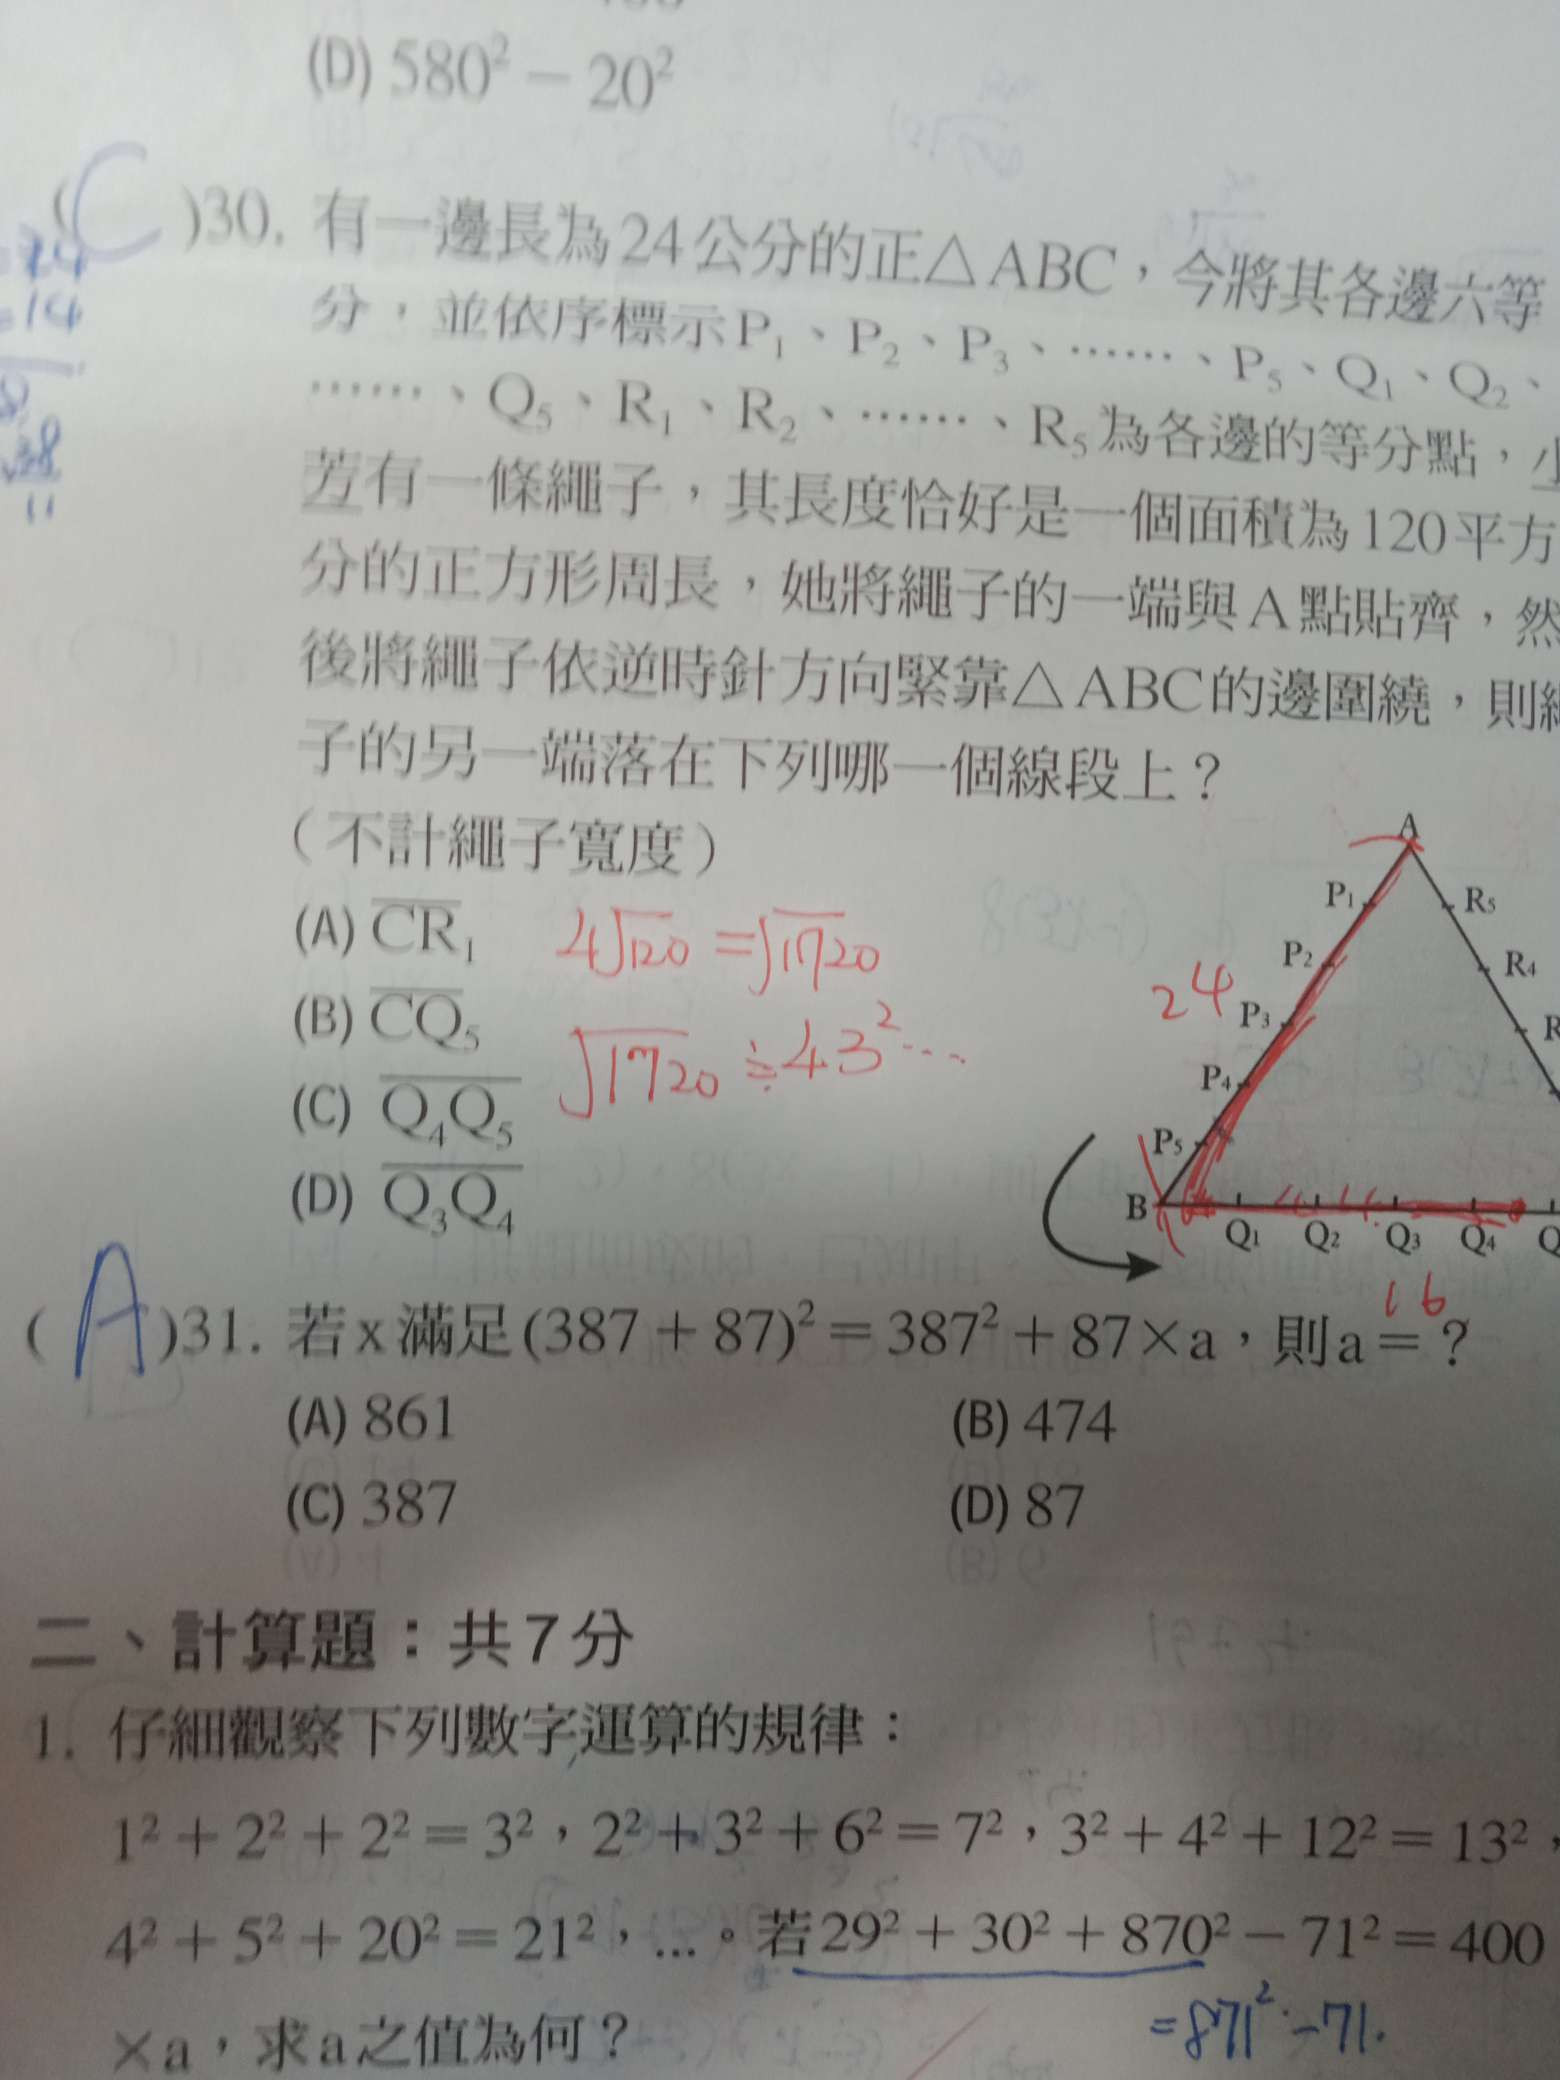 (D) 580² − 20²
(C)30. 有一邊長為24公分的正△ABC，今將其各邊六等
分，並依序標示P₁、P₂、P₃、……、P₅、Q₁、Q₂、
……、Q₅、R₁、R₂、……、R₅為各邊的等分點，小
芳有一條繩子，其長度恰好是一個面積為120平方
分的正方形周長，她將繩子的一端與A點貼齊，然
後將繩子依逆時針方向緊靠△ABC的邊圍繞，則繩
子的另一端落在下列哪一個線段上？
（不計繩子寬度）
(A) CR₁
(B) CQ₅
(C) Q₄Q₅
(D) Q₃Q₄
4√120 = √1720
√1720 ≑ 43²…
A
P₁ R₅
P₂ R₄
24 P₃ R
P₄
P₅
B Q₁ Q₂ Q₃ Q₄ Q
16
(A)31. 若x滿足(387 + 87)² = 387² + 87×a，則a = ?
(A) 861 (B) 474
(C) 387 (D) 87
二、計算題：共7分
1. 仔細觀察下列數字運算的規律：
1² + 2² + 2² = 3²，2² + 3² + 6² = 7²，3² + 4² + 12² = 13²，
4² + 5² + 20² = 21²，…。若29² + 30² + 870² − 71² = 400
×a，求a之值為何？
= 871² − 71.